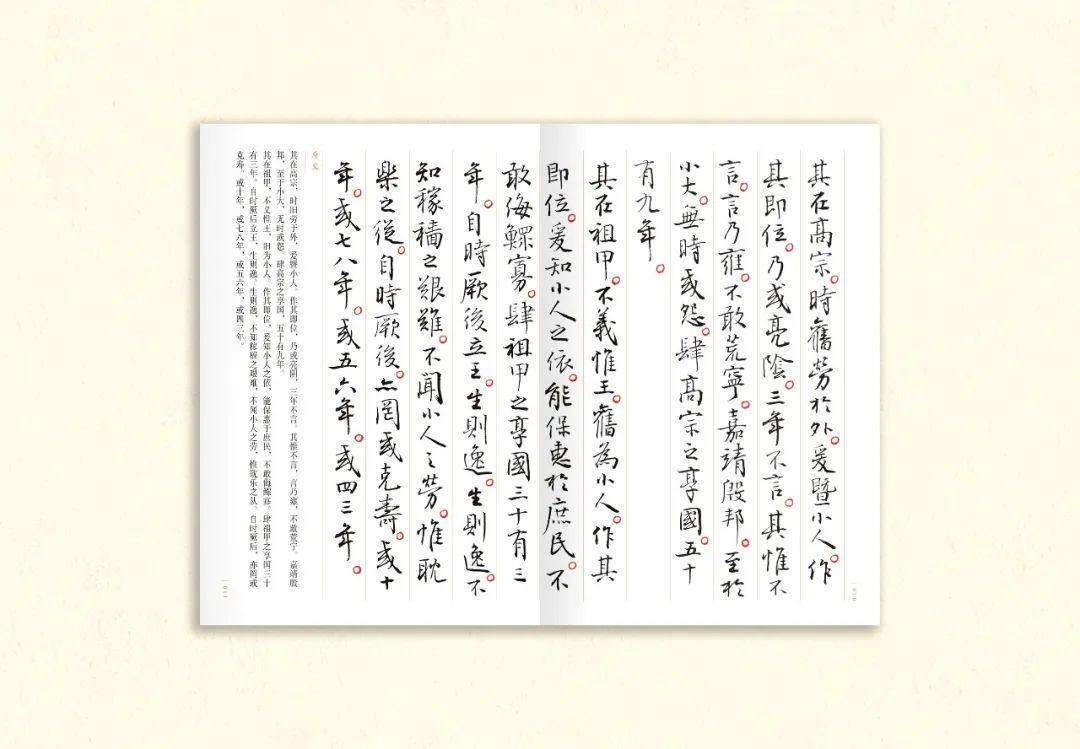 其在高宗。時舊勞於外。爰暨小人。作
其即位。乃或亮陰。三年不言。其惟不
言。言乃雍。不敢荒寧。嘉靖殷邦。至於
小大。無時或怨。肆高宗之享國。五十
有九年。
其在祖甲。不義惟王。舊為小人。作其
即位。爰知小人之依。能保惠於庶民。不
敢侮鰥寡。肆祖甲之享國三十有三
年。自時厥後立王。生則逸。生則逸。不
知稼穡之艱難。不聞小人之勞。惟耽
樂之從。自時厥後。亦罔或克壽。或十
年。或七八年。或五六年。或四三年。
原文
其在高宗,时旧劳于外,爰暨小人。作其即位,乃或亮阴,三年不言。其惟不言,言乃雍,不敢荒宁。嘉靖殷
邦,至于小大,无时或怨。肆高宗之享国,五十有九年。
其在祖甲,不义惟王,旧为小人。作其即位,爰知小人之依,能保惠于庶民,不敢侮鳏寡。肆祖甲之享国三十
有三年。自时厥后立王,生则逸,生则逸,不知稼穑之艰难,不闻小人之劳,惟耽乐之从。自时厥后,亦罔或
克寿。或十年,或七八年,或五六年,或四三年。
010
011